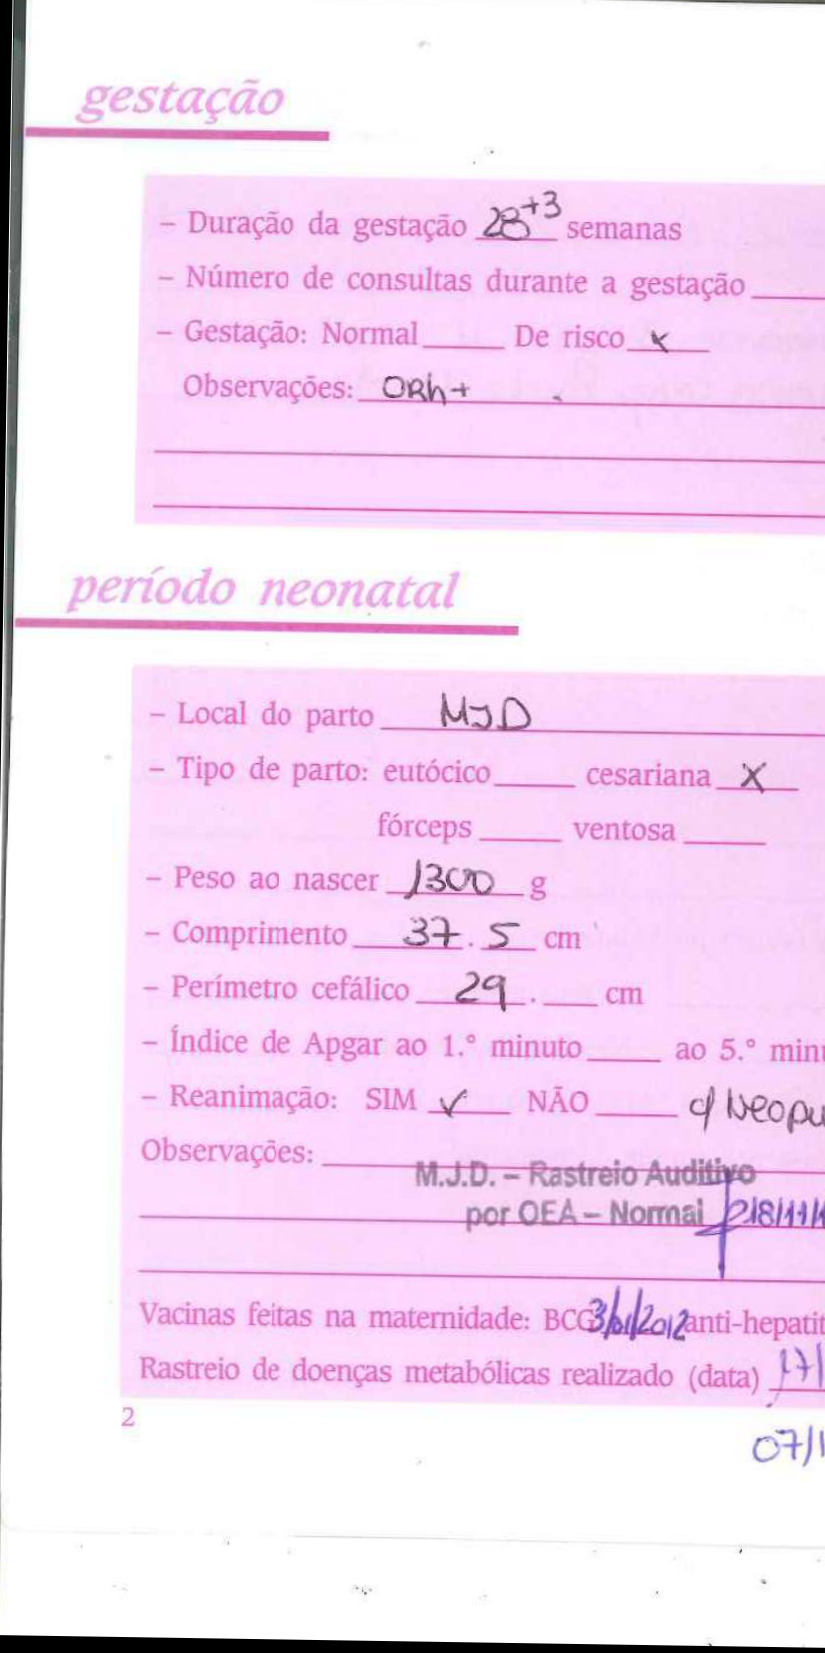 gestação
– Duração da gestação 28+3 semanas
– Número de consultas durante a gestação
– Gestação: Normal De risco x
Observações: ORh+
período neonatal
– Local do parto MJD
– Tipo de parto: eutócico cesariana X
fórceps ventosa
– Peso ao nascer 1300 g
– Comprimento 37.5 cm
– Perímetro cefálico 29 . cm
– Índice de Apgar ao 1.º minuto ao 5.º minu
– Reanimação: SIM ✓ NÃO c/ Neopu
Observações:
M.J.D. – Rastreio Auditivo
por OEA – Normal 28/11/1
Vacinas feitas na maternidade: BCG 3/01/2012 anti-hepatit
Rastreio de doenças metabólicas realizado (data) 17/
2
07/1